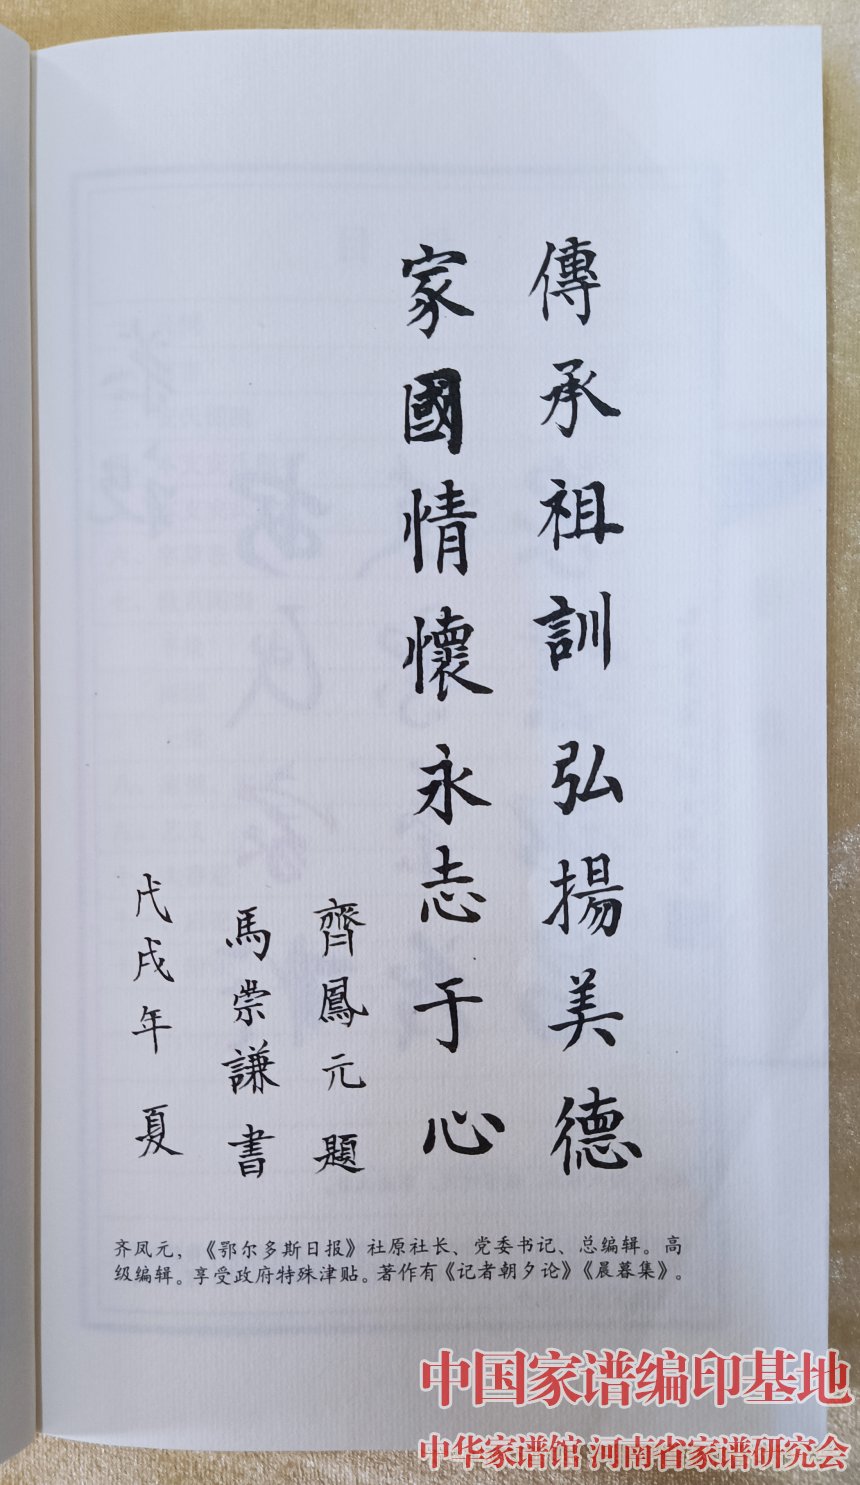 傳承祖訓弘揚美德
家國情懷永志于心
齊鳳元題
馬崇謙書
戊戌年夏
齐凤元，《鄂尔多斯日报》社原社长、党委书记、总编辑。高
级编辑。享受政府特殊津贴。著作有《记者朝夕论》《晨暮集》。
中国家谱编印基地
中华家谱馆 河南省家谱研究会